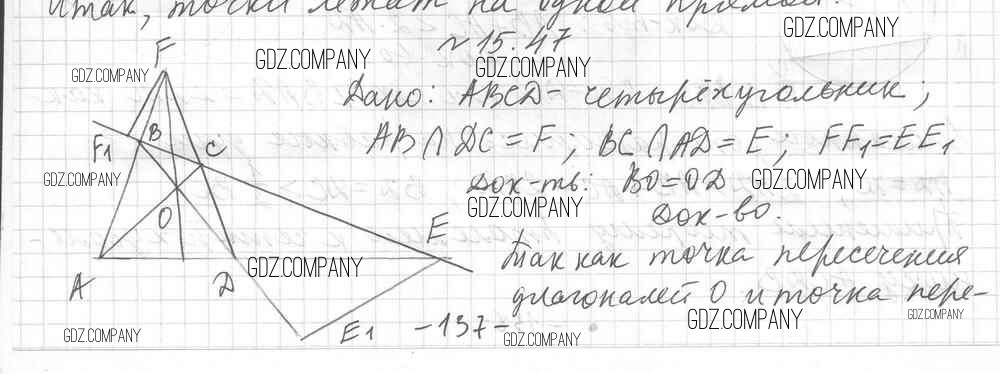 Итак, точки лежат на одной прямой.
~ 15.47
GDZ.COMPANY
GDZ.COMPANY
GDZ.COMPANY
GDZ.COMPANY
F
Дано: ABCD - четырёхугольник;
AB ∩ DC = F; BC ∩ AD = E; FF₁ = EE₁
F₁ B C
GDZ.COMPANY
Док-ть: BO = OD
GDZ.COMPANY
GDZ.COMPANY
Док-во.
O E
Так как точка пересечения
A D
GDZ.COMPANY
диагоналей O и точка пере-
E₁ -137-
GDZ.COMPANY
GDZ.COMPANY
GDZ.COMPANY
GDZ.COMPANY